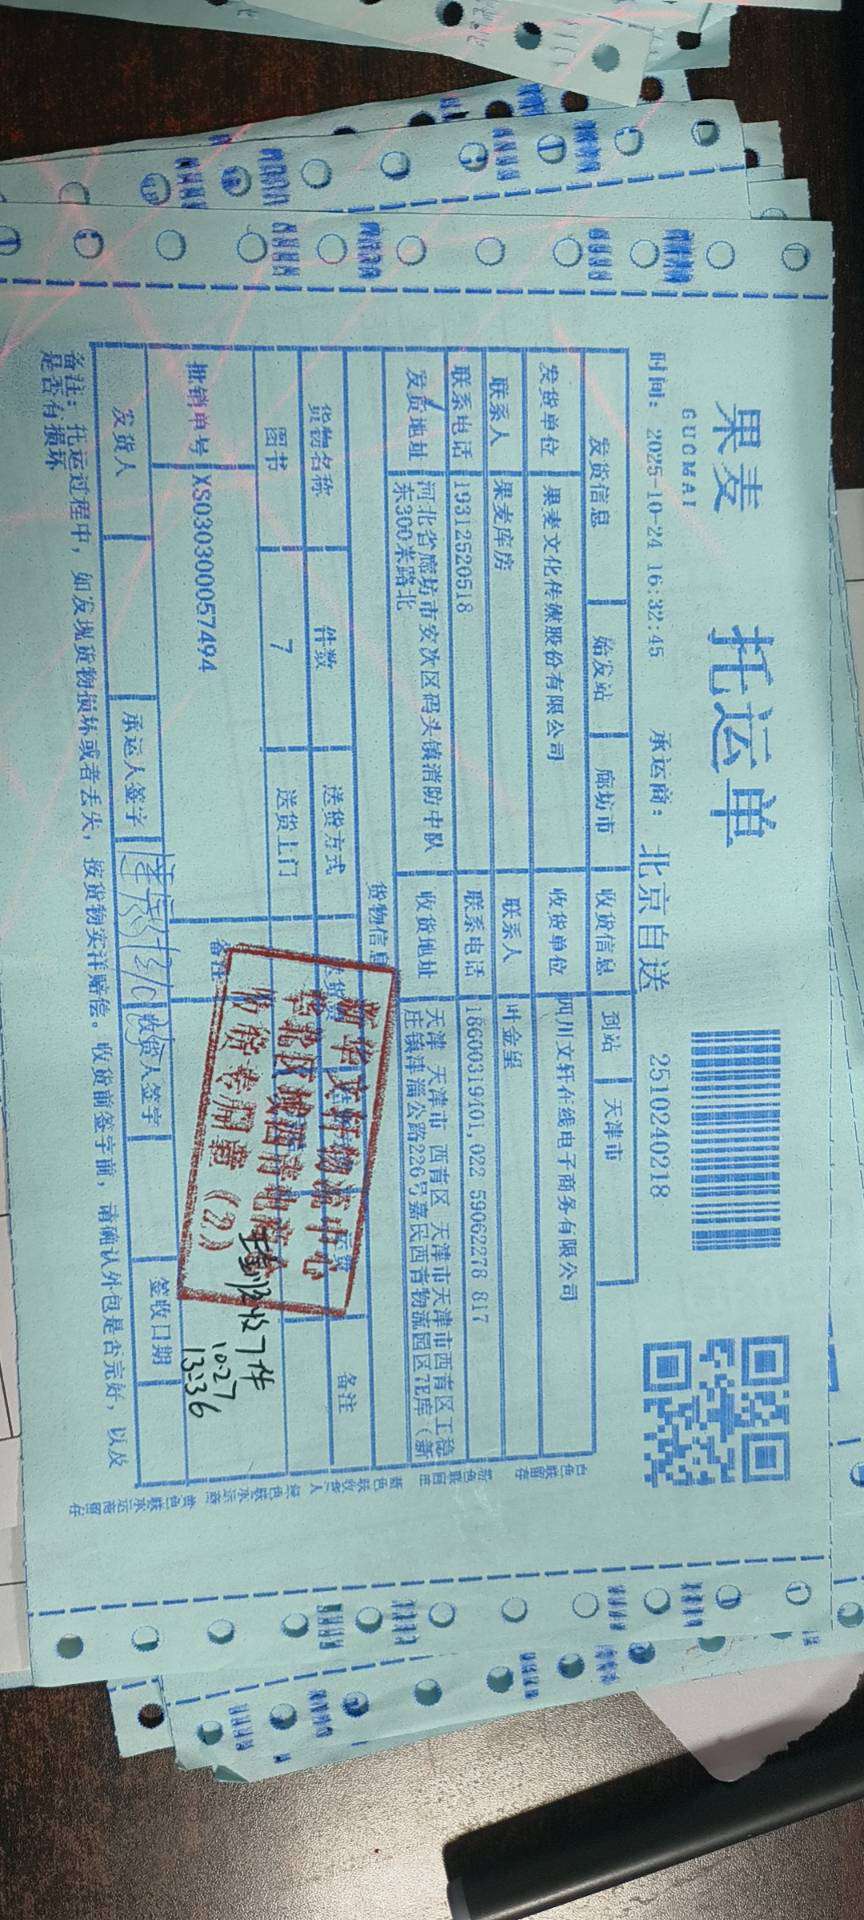 果麦 托运单
GUOMAI
2510240218
时间: 2025-10-24 16:32:45 承运商: 北京自送
发货信息 始发站 廊坊市 收货信息 到站 天津市
发货单位 果麦文化传媒股份有限公司 收货单位 四川文轩在线电子商务有限公司
联系人 果麦库房 联系人 叶金星
联系电话 19312520518 联系电话 18600319401,022 59062278 817
发货地址 河北省廊坊市安次区码头镇消防中队
东300米路北
收货地址 天津 天津市 西青区 天津市天津市西青区王稳
庄镇津淄公路226号嘉民西青物流园区7E库（新
货物信息
货物名称 件数 送货方式 备注
图书 7 送货上门
批销单号 XS030300057494 备注
新华文轩物流中心
华北区域西青电商仓
收货专用章（2）
收7件
10.27
13:36
发货人 承运人签字 收货人签字 签收日期
备注: 托运过程中，如发现货物损坏或者丢失，按货物实洋赔偿。收货前签字前，请确认外包是否完好，以及
是否有损坏
白色联留存 粉色联回库 蓝色联收货人 绿色联承运商 黄色联承运商留存